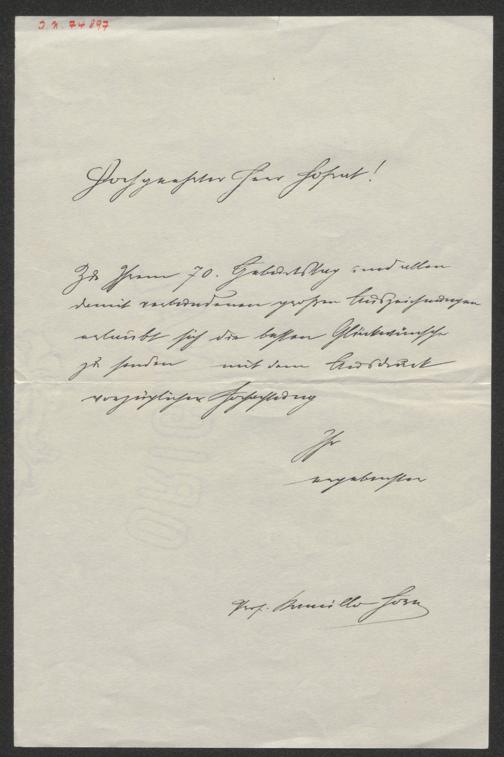 J.N. 74897
Hochgeehrter Herr Hofrat!
Zu Ihrem 70. Geburtstag und allen
damit verbundenen großen Auszeichnungen
erlaubt sich die besten Glückwünsche
zu senden mit dem Ausdruck
vorzüglicher Hochachtung
Ihr
ergebenster
Prof. Kamillo Horn